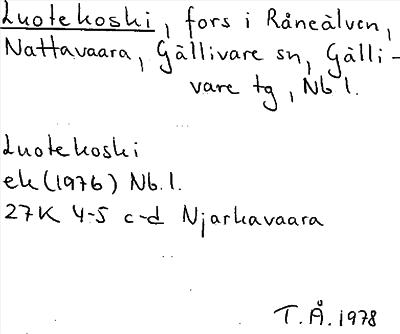 Luotekoski, fors i Råneälven,
Nattavaara, Gällivare sn, Gälli-
vare tg, Nb l.
Luotekoski
ek (1976) Nb. l.
27K 4-5 c-d Njarkavaara
T. Å. 1978